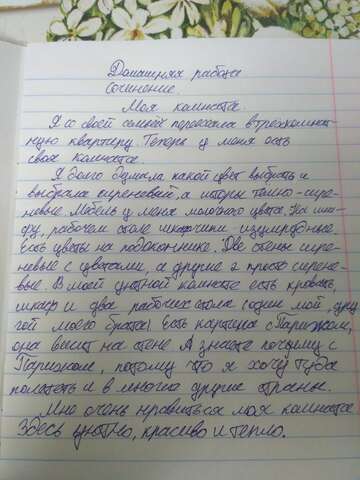 Домашняя работа
Сочинение.
Моя комната.
Я со своей семьёй переехала в трёхкомнат-
ную квартиру. Теперь у меня есть
своя комната.
Я долго думала какой цвет выбрать и
выбрала сиреневый, а шторы тёмно-сире-
невые. Мебель у меня молочного цвета. На шка-
фу, рабочем столе шкафчики изумрудные.
Есть цветы на подоконнике. Две стены сире-
невые с цветами, а другие 2 просто сирене-
вые. В моей уютной комнате есть кровать,
шкаф и два рабочих стола (один мой, дру
гой моего брата). Есть картина с Парижом,
она висит на стене. А знаете почему с
Парижом, потому что я хочу туда
полететь и в многие другие страны.
Мне очень нравиться моя комната.
Здесь уютно, красиво и тепло.